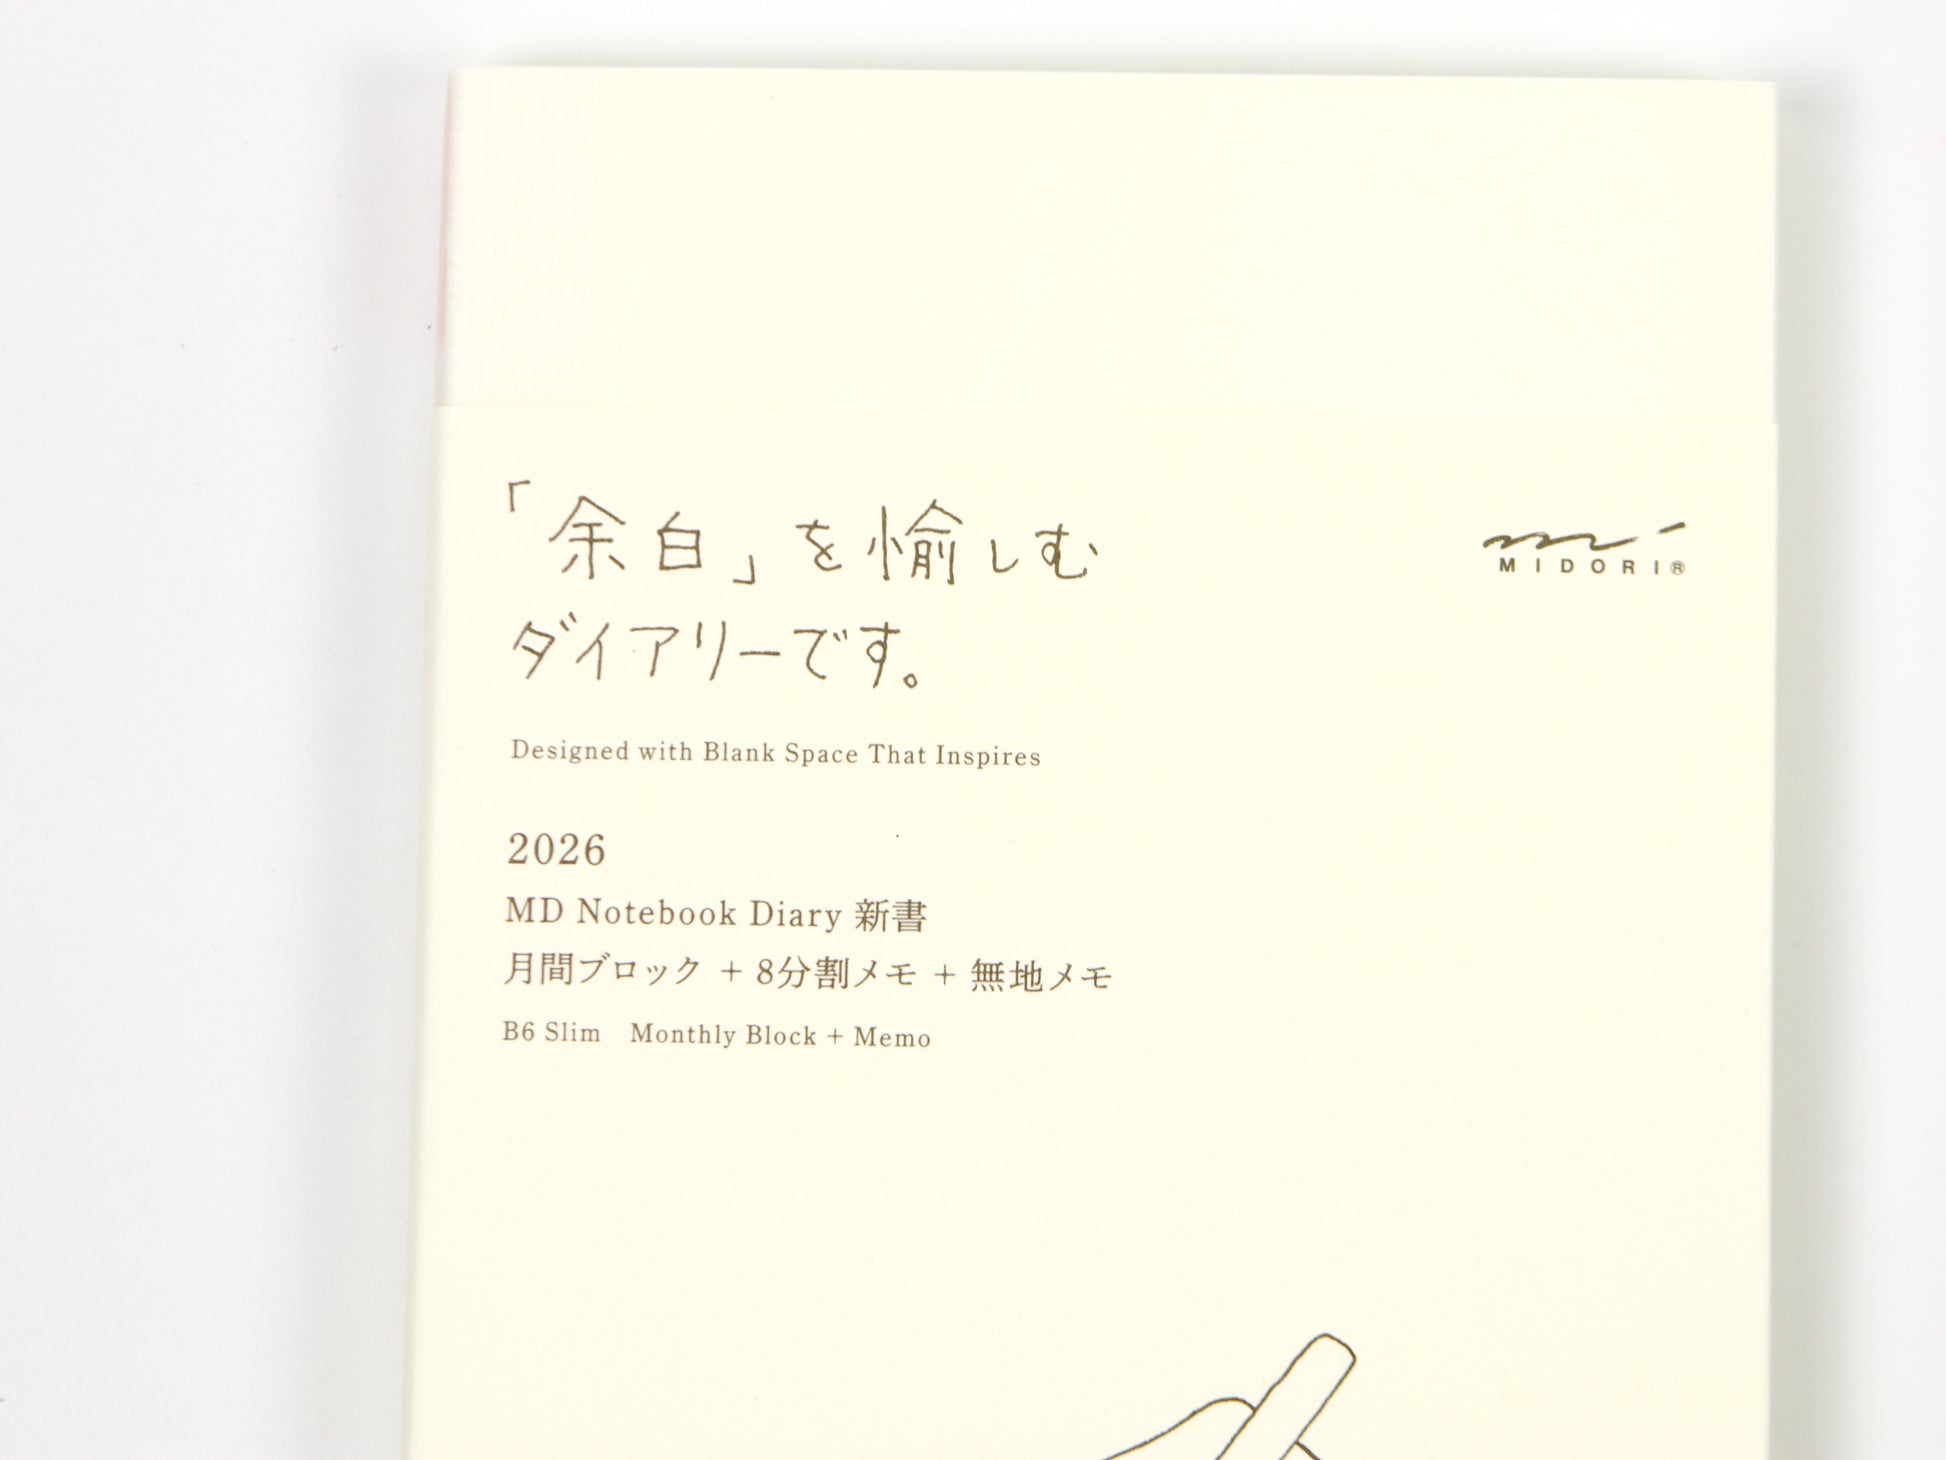 「余白」を愉しむ
ダイアリーです。
MIDORI®
Designed with Blank Space That Inspires
2026
MD Notebook Diary 新書
月間ブロック + 8分割メモ + 無地メモ
B6 Slim Monthly Block + Memo